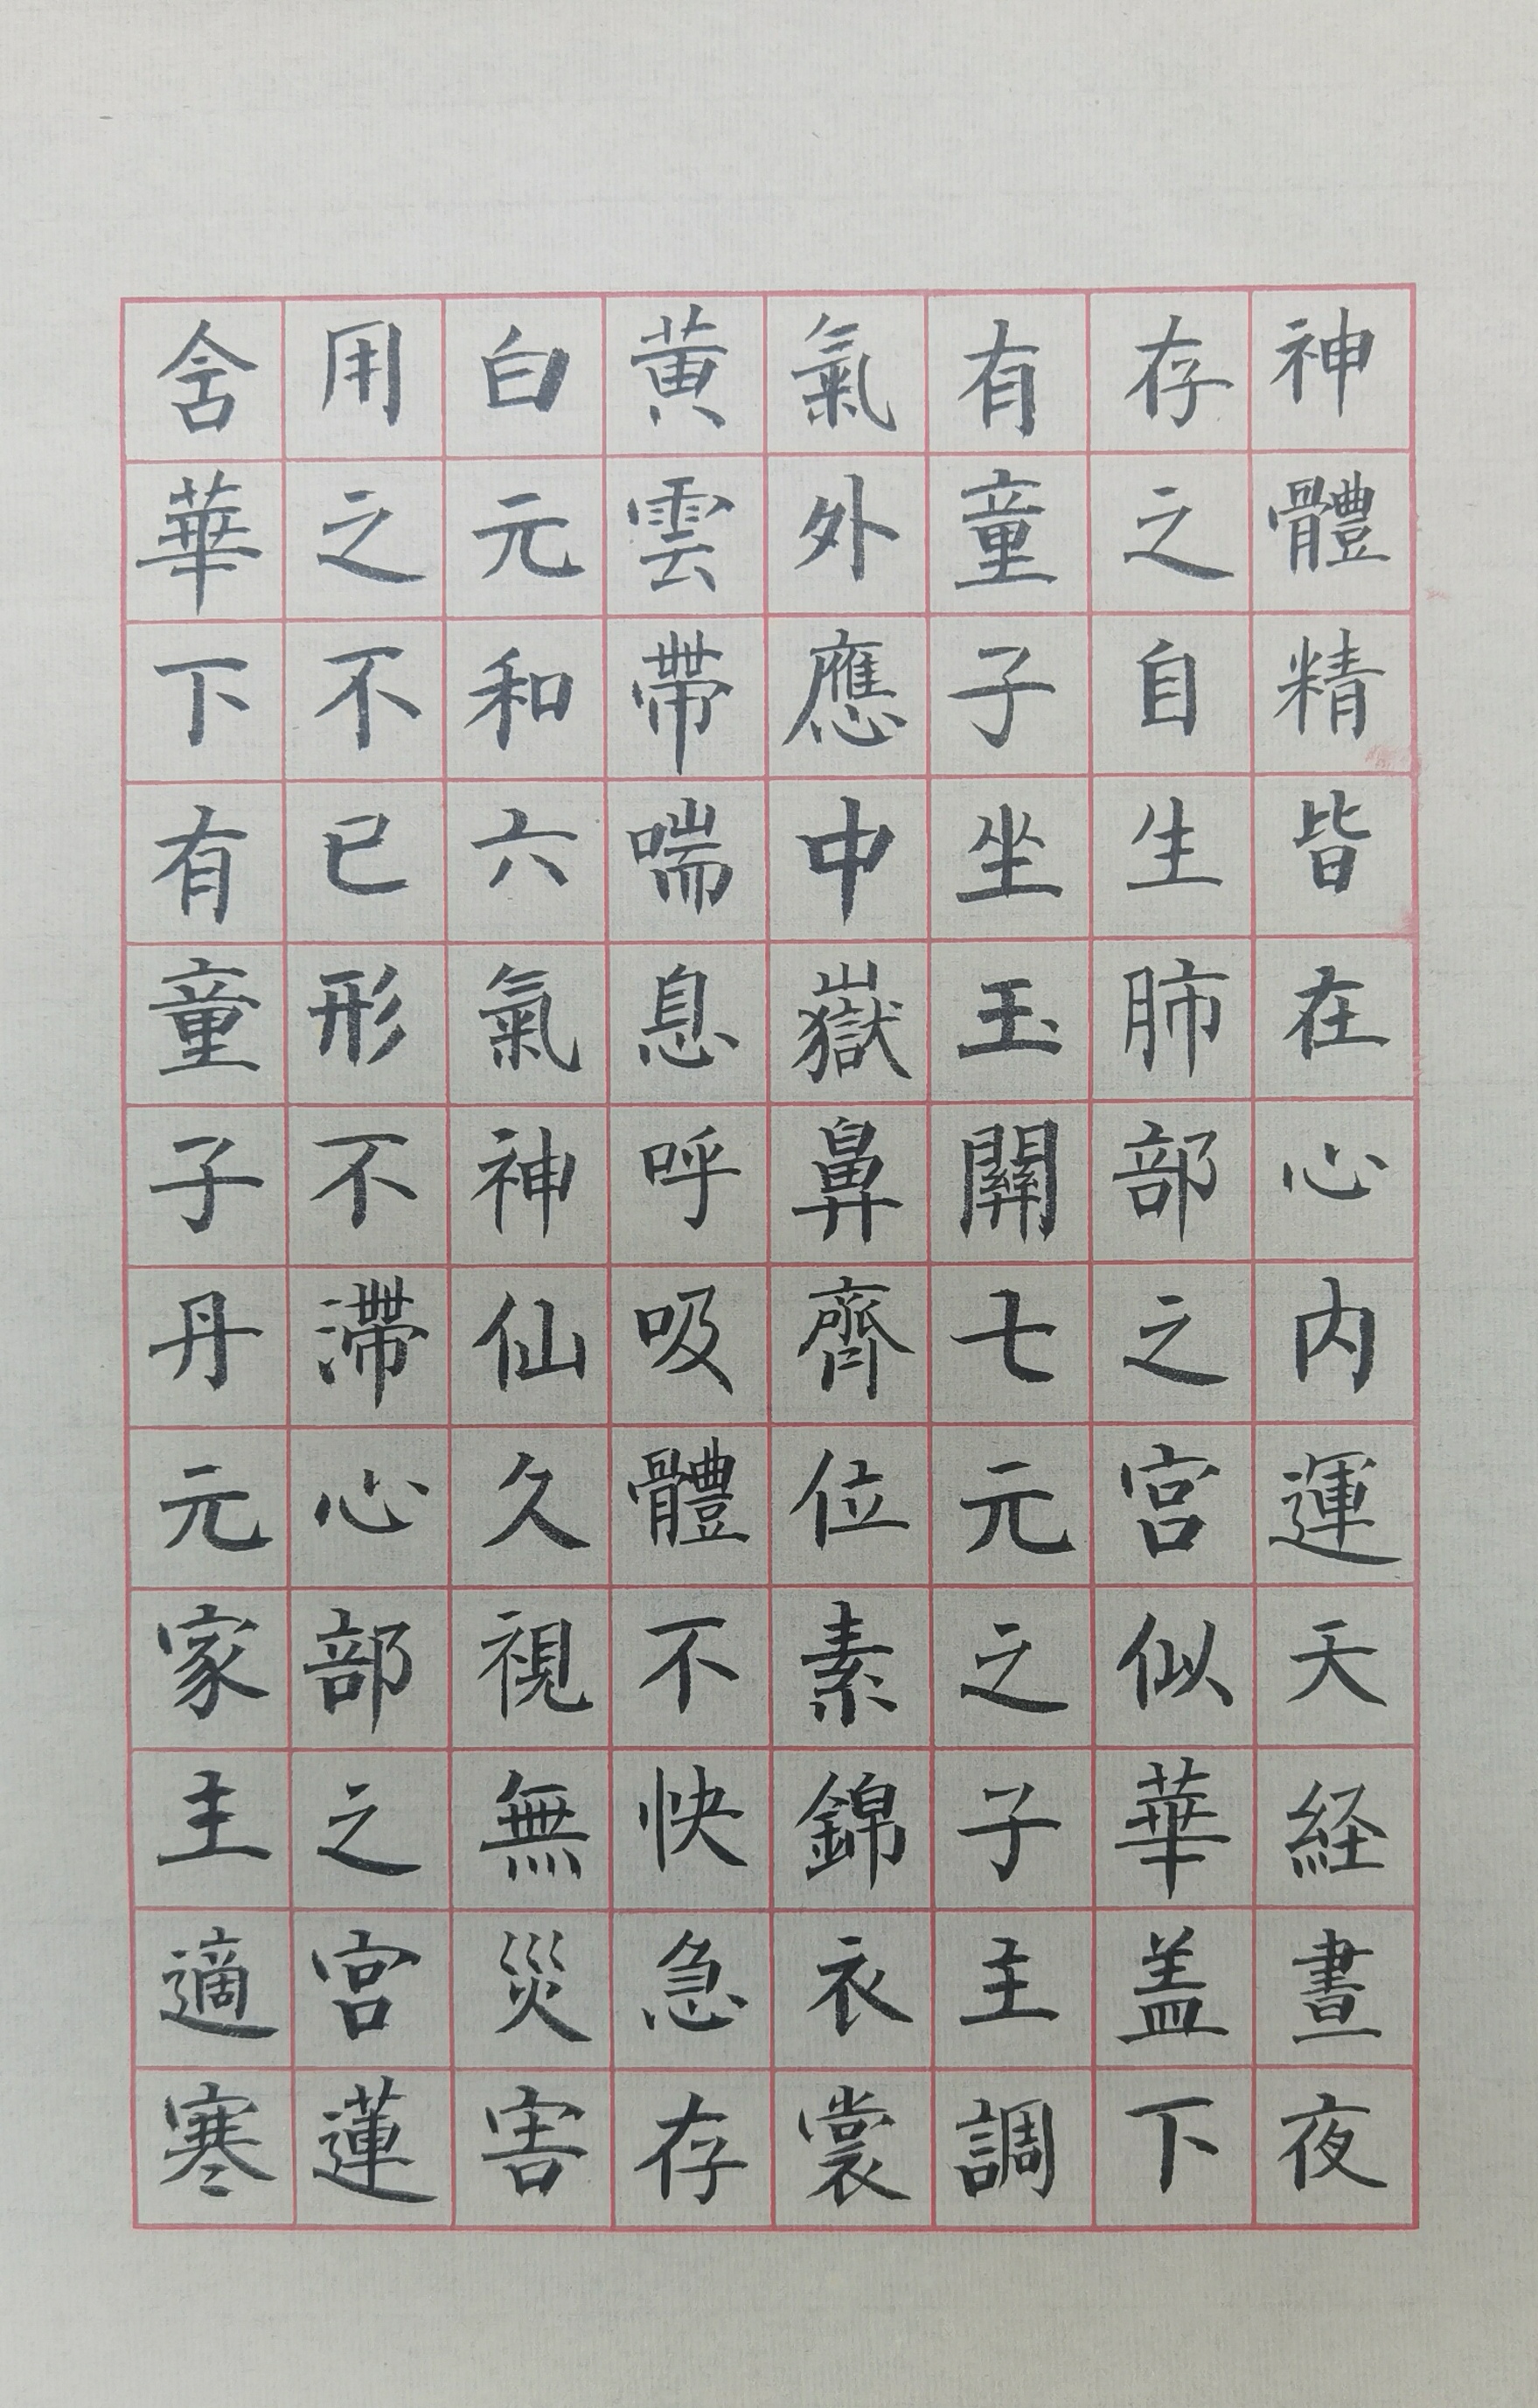 神體精皆在心内運天経晝夜
存之自生肺部之宮似華盖下
有童子坐玉闕七元之子主調
氣外應中嶽鼻齊位素錦衣裳
黄雲帶喘息呼吸體不快急存
白元和六氣神仙久視無災害
用之不已形不滯心部之宮蓮
含華下有童子丹元家主適寒